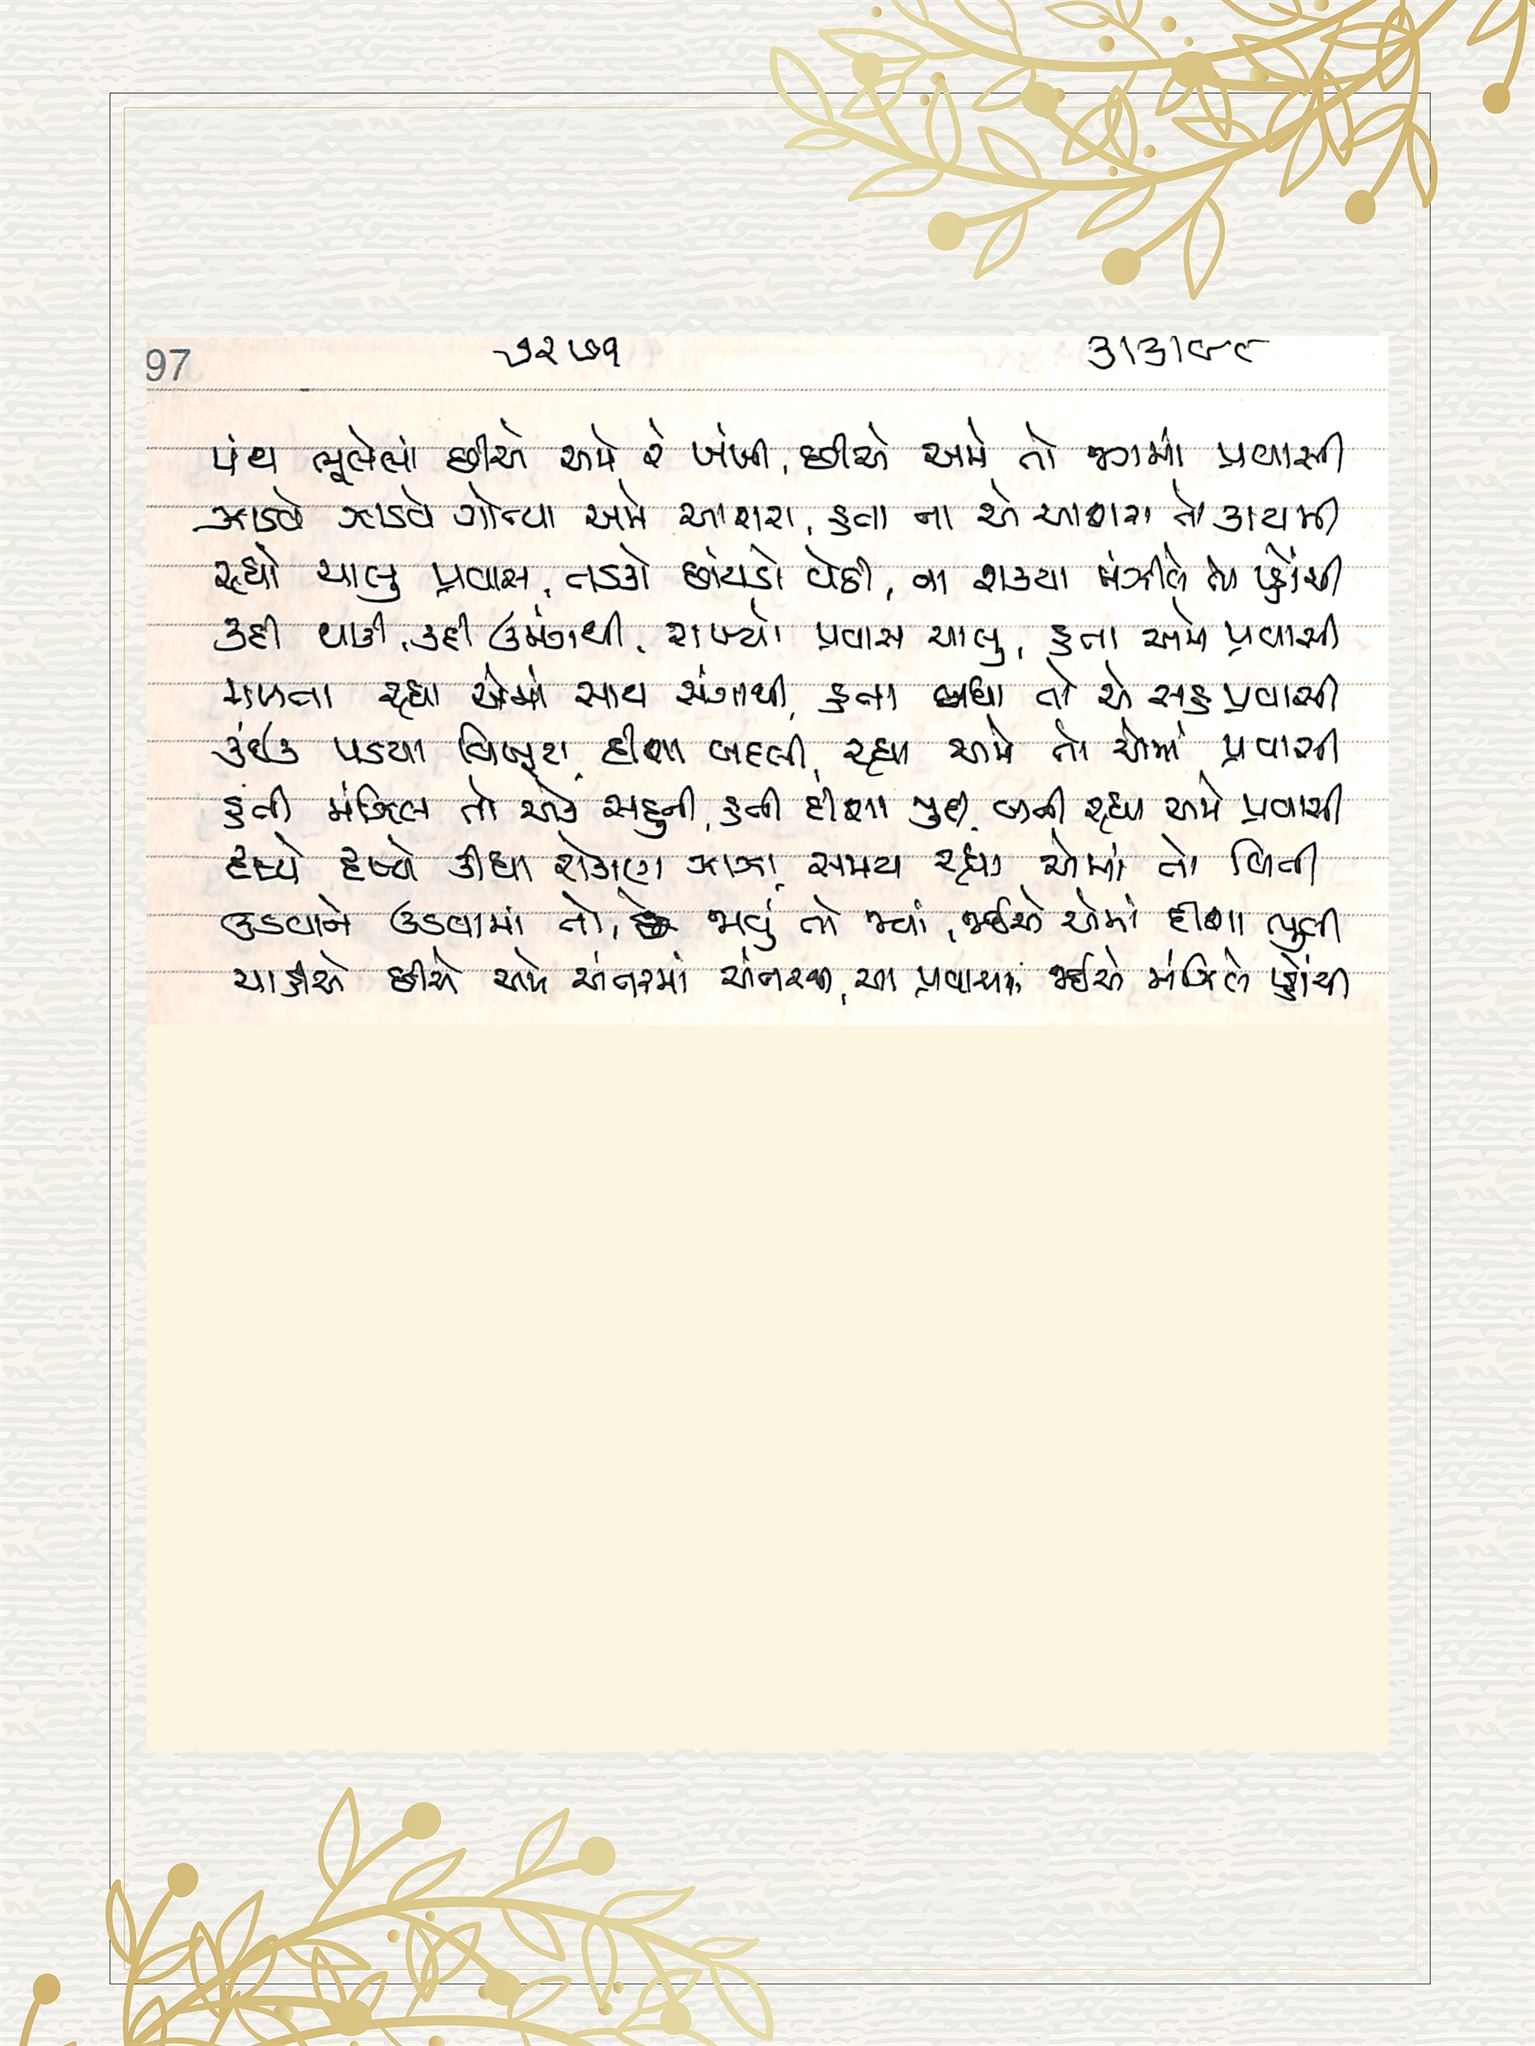 97 ૭૨૭૧ ૩।૩।૯૮
પંથ ભૂલેલાં છીએ અમે રે પંખી, છીએ અમે તો જગમાં પ્રવાસી
ઝાડવે ઝાડવે ગોત્યા અમે આશરા, હતા ના એ આશરા તો કાયમી
રહ્યો ચાલુ પ્રવાસ, તડકો છાંયડો વેઠી, ના શક્યા મંઝીલે તો પ્હોંચી
કદી થાકી, કદી ઉમંગથી, રાખ્યો પ્રવાસ ચાલુ, હતા અમે પ્રવાસી
મળતા રહ્યા એમાં સાથ સંગાથી, હતા બધા તો એ સહુ પ્રવાસી
કંઈક પડયા વિખૂટા, દીશા બદલી, રહ્યા અમે તો એમાં પ્રવાસી
હતી મંઝિલ તો એક સહુની, હતી દીશા જુદી, બની રહ્યા અમે પ્રવાસી
દૃશ્યે દૃશ્યે કીધા રોકાણ ઝાઝા, સમય રહ્યા એમાં તો વિતી
ઉડવાને ઉડવામાં તો, જવું તો જ્યાં, જઈએ એમાં દીશા ભુલી
ચાહીએ છીએ અમે અંતરમાં અંતરથી, આ પ્રવાસમાં જઈએ મંઝિલે પ્હોંચી